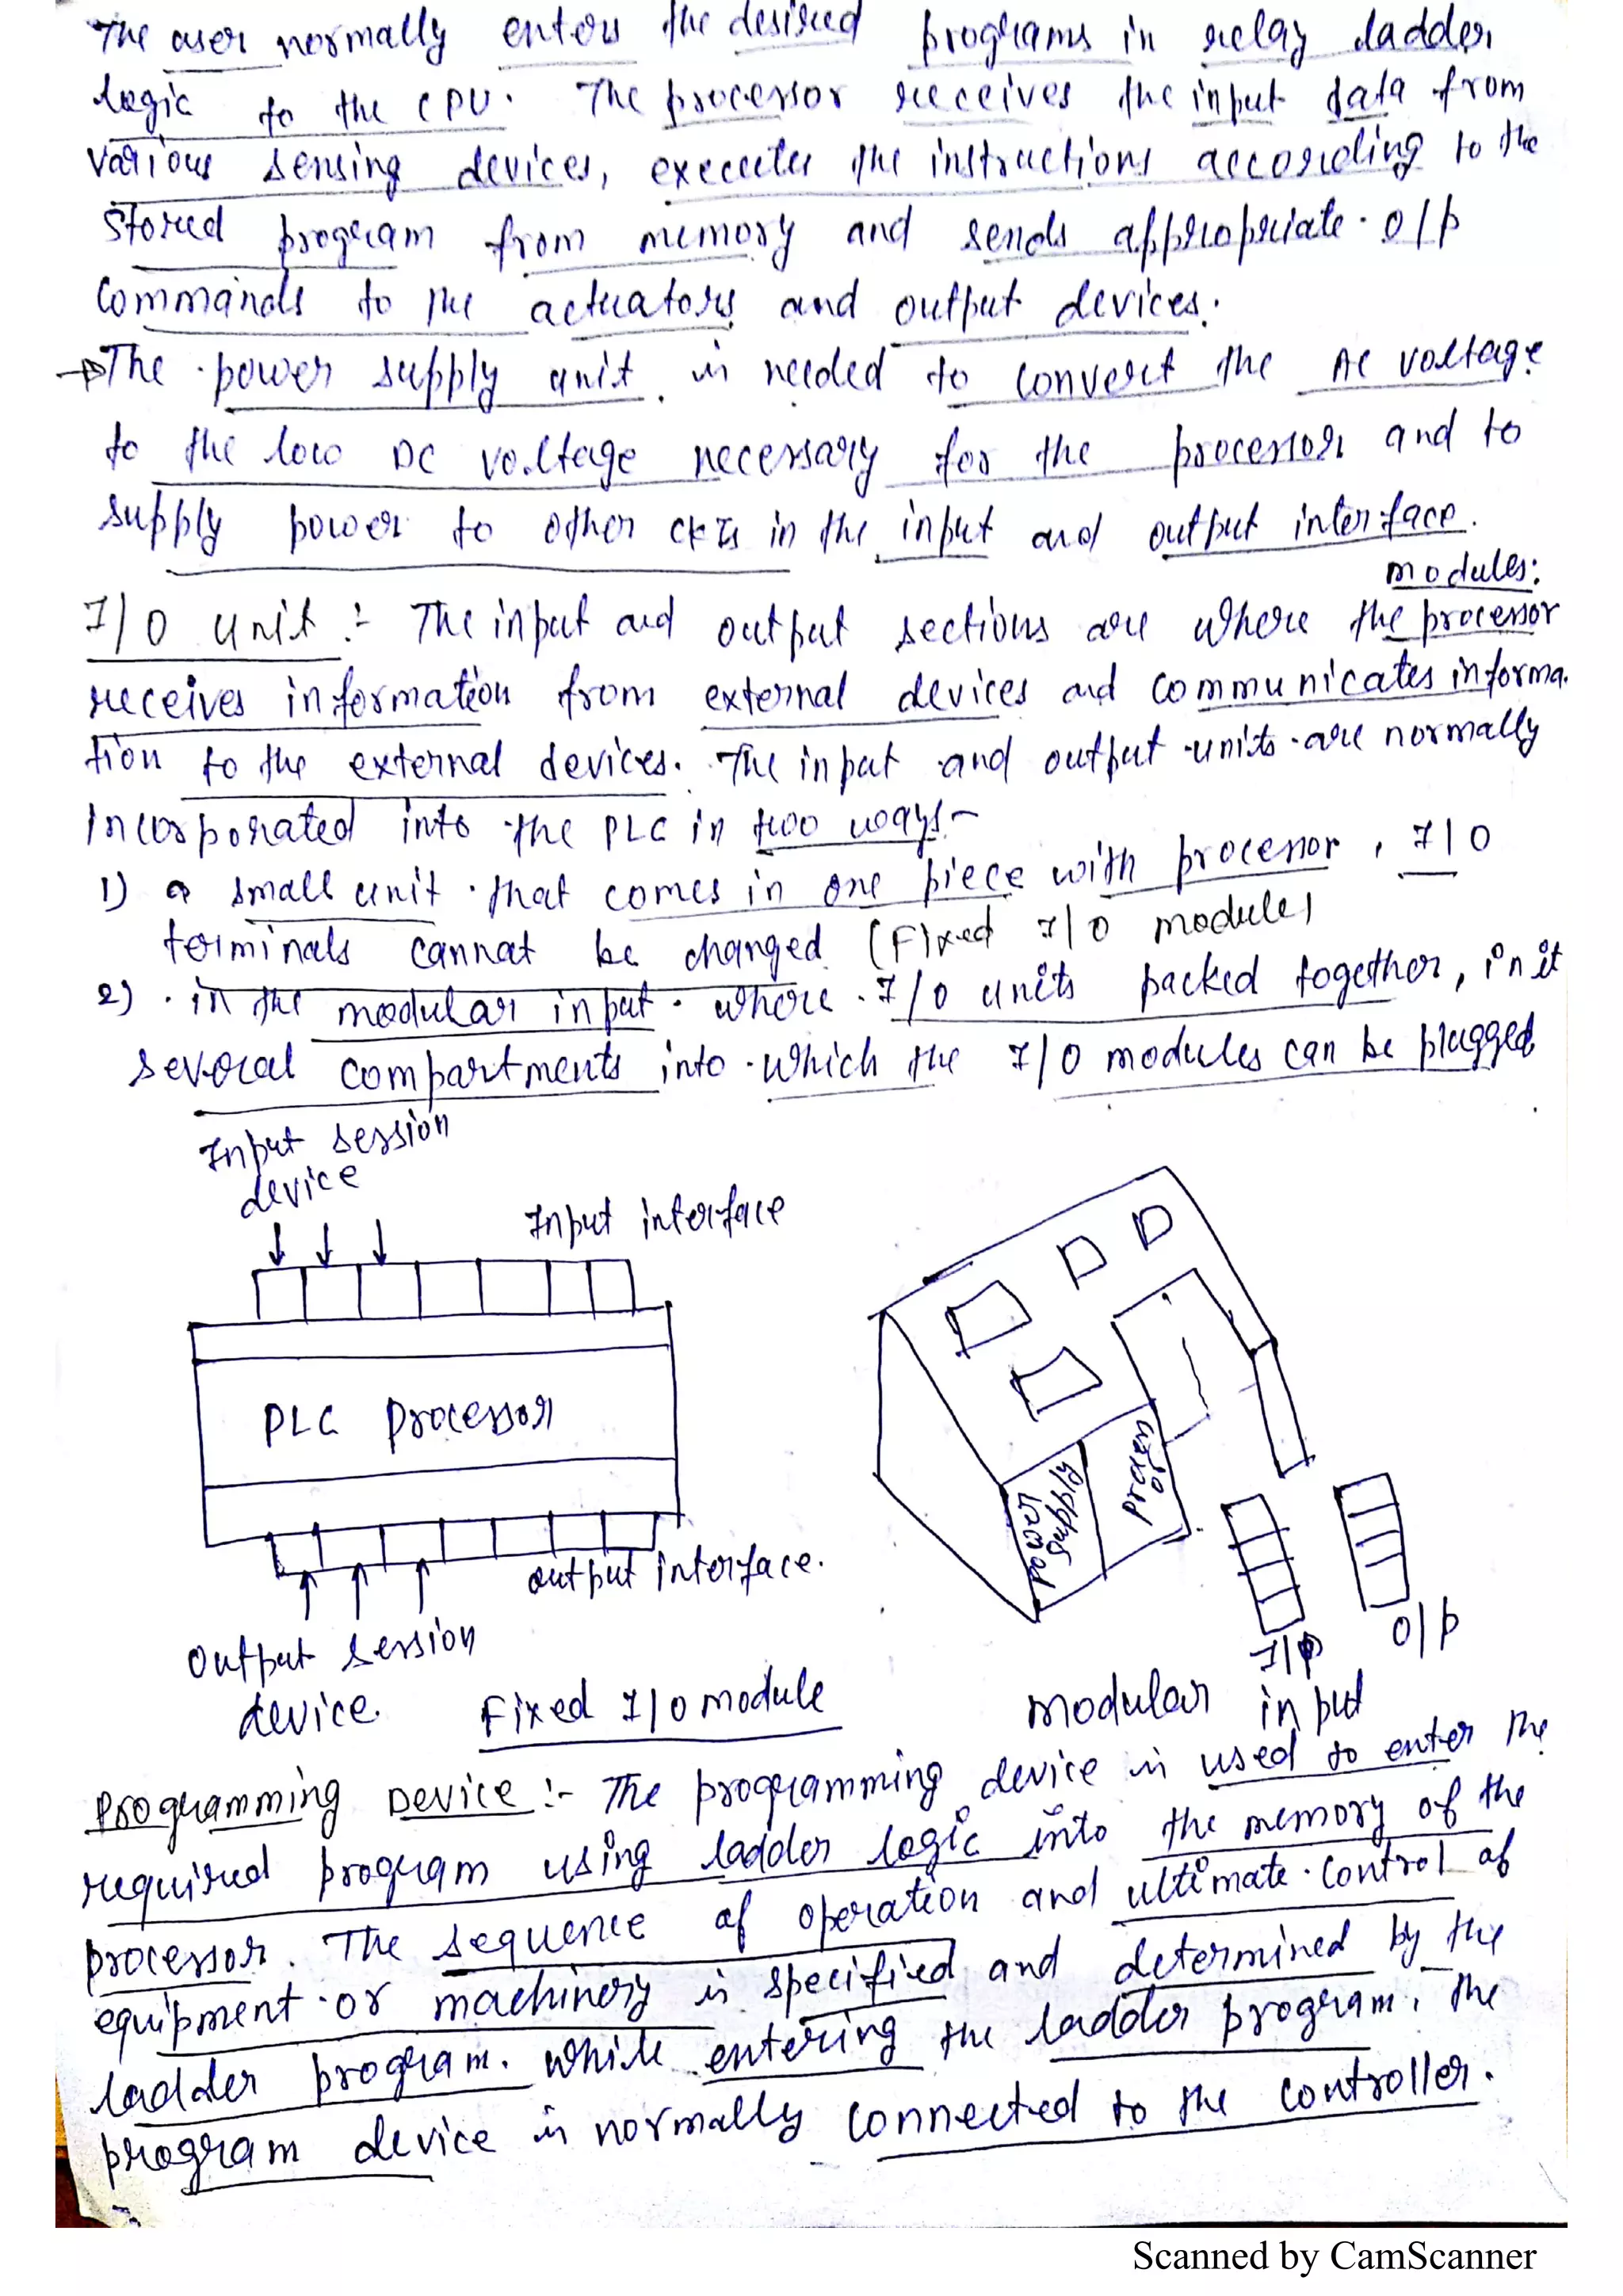 The user normally enters the desired programs in relay ladder
logic to the CPU. The processor receives the input data from
various sensing devices, executes the instructions according to the
stored program from memory and sends appropriate o/p
commands to the actuators and output devices.
→ The power supply unit is needed to convert the AC voltage
to the low DC voltage necessary for the processor and to
supply power to other CKTs in the input and output interface
modules:
I/O unit :- The input and output sections are where the processor
receives information from external devices and communicates informa-
tion to the external devices. The input and output units are normally
incorporated into the PLC in two ways-
1) a small unit that comes in one piece with processor, I/O
terminals cannat be changed (Fixed I/O module)
2) in the modular input where I/O units packed together, in it
several compartments into which the I/O modules can be plugged
Input session
device
Input interface
PLC Processor
output interface.
Output session
device.
Fixed I/O module
Power
supply
Process
or
I/P
O/p
modular input
Programming Device :- The programming device is used to enter the
required program using ladder logic into the memory of the
processor. The sequence of operation and ultimate control of
equipment or machinery is specified and determined by the
ladder program. While entering the ladder program, the
program device is normally connected to the controller.
Scanned by CamScanner